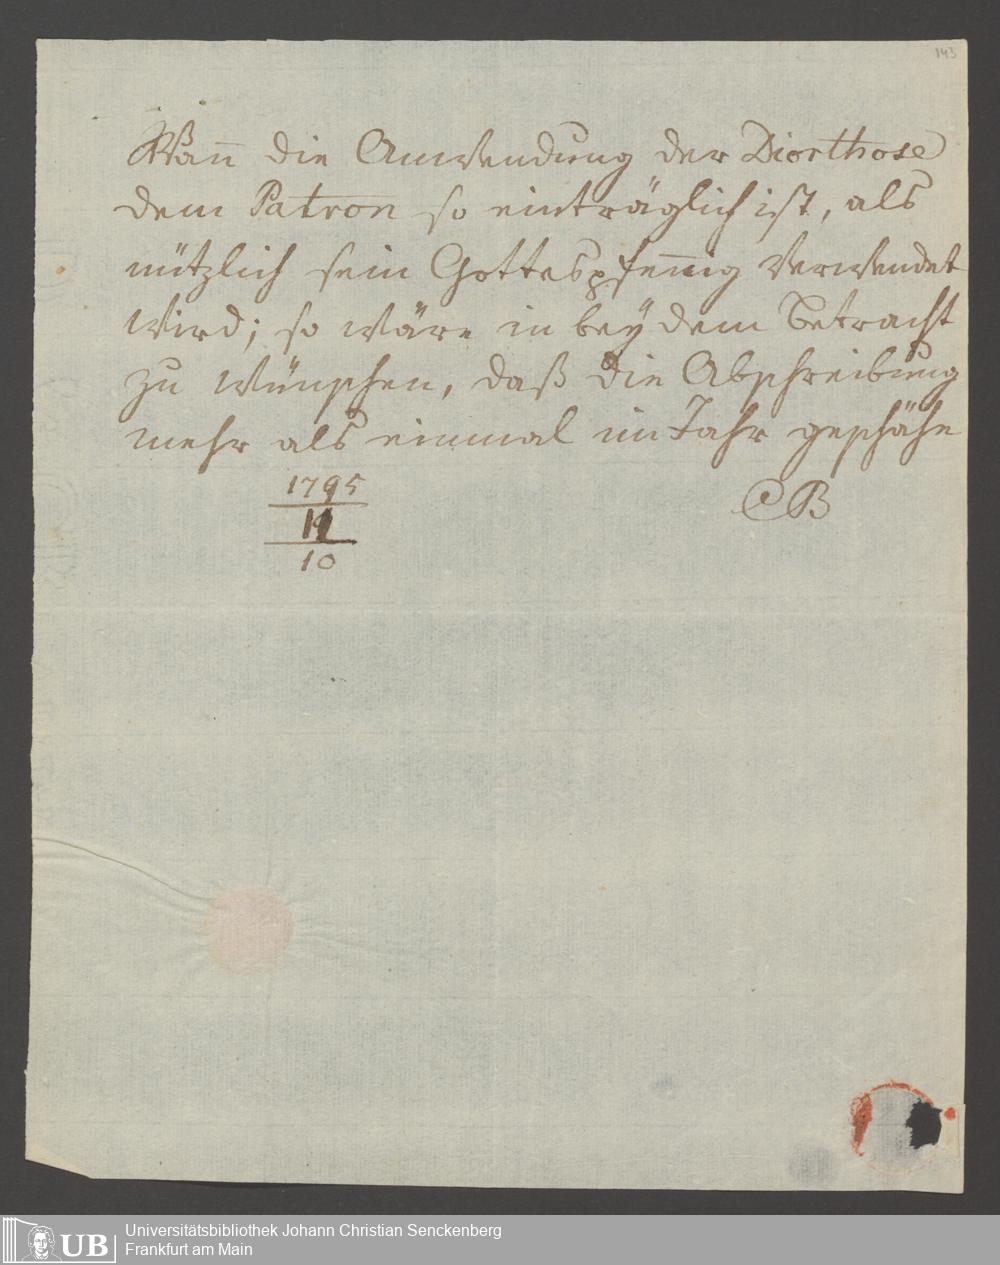 143
Wañ die Anwendung der Diorthose
dem Patron so einträglich ist, als
nützlich sein Gottespfennig verwendet
wird; so wäre in beydem Betracht
zu wünschen, daß die Abschreibung
mehr als einmal im Jahr geschähe
1795 CB
11
10
UB
Universitätsbibliothek Johann Christian Senckenberg
Frankfurt am Main